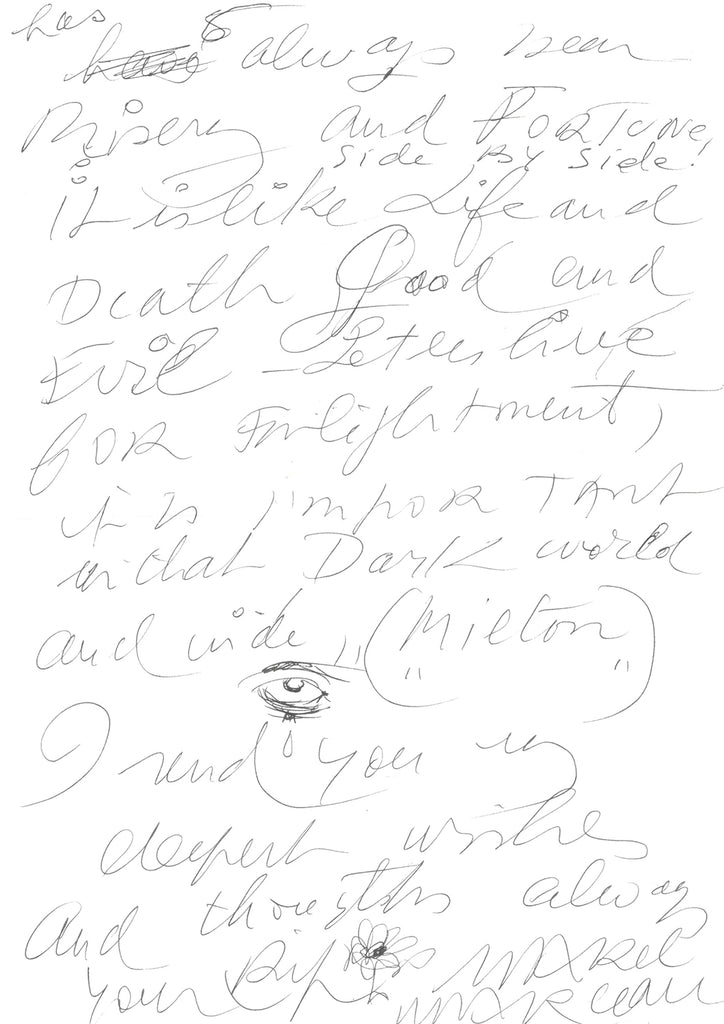 has
6
always been
Misery and FORTUNE,
Side BY Side!
it is like Life and
Death Good and
Evil - Let us live
FOR Enlightment,
it is importAnt
in that Dark world
and wide, " (Milton)
" "
I send you my
deepest wishes
and thoughts always
And
your Bip MARCEL
MARCEAU